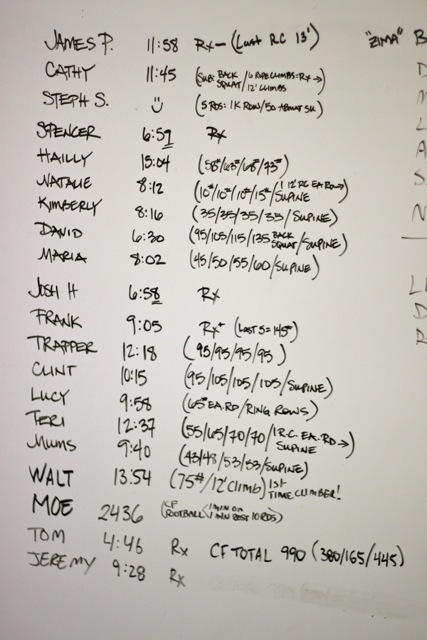 JAMES P. 11:58 Rx- (LAST RC 13') "ZIMA" B
CATHY 11:45 (SUB: BACK SQUAT/6 ROPE CLIMBS=RX→ 12' CLIMBS
STEPH S. (5 RDS: 1K ROW/50
SPENCER 6:59 Rx
HAILLY 15:04 (58#/63#/68#/73#)
NATALIE 8:12 (10#/10#/10#/15#/SUPINE 1 12' RC EA RD→)
KIMBERLY 8:16 (35/35/35/35/SUPINE)
DAVID 6:30 (95/105/115/135 BACK SQUAT/SUPINE)
MARIA 8:02 (45/50/55/60/SUPINE)
JOSH H 6:58 Rx
FRANK 9:05 Rx+ (LAST 5=145#)
TRAPPER 12:18 (95/95/95/95)
CLINT 10:15 (95/105/105/105/SUPINE)
LUCY 9:58 (65# EA.RD/RING ROWS)
TERI 12:37 (55/65/70/70/1 R.C. EA. RD→ SUPINE
MUMS 9:40 (43/48/53/53/SUPINE)
WALT 13:54 (75#/12' CLIMB) 1ST TIME CLIMBER!
MOE 2436 (CF FOOTBALL/1 MIN ON 1 MIN REST 10 RDS)
TOM 4:46 Rx CF TOTAL 990 (380/165/445)
JEREMY 9:28 Rx